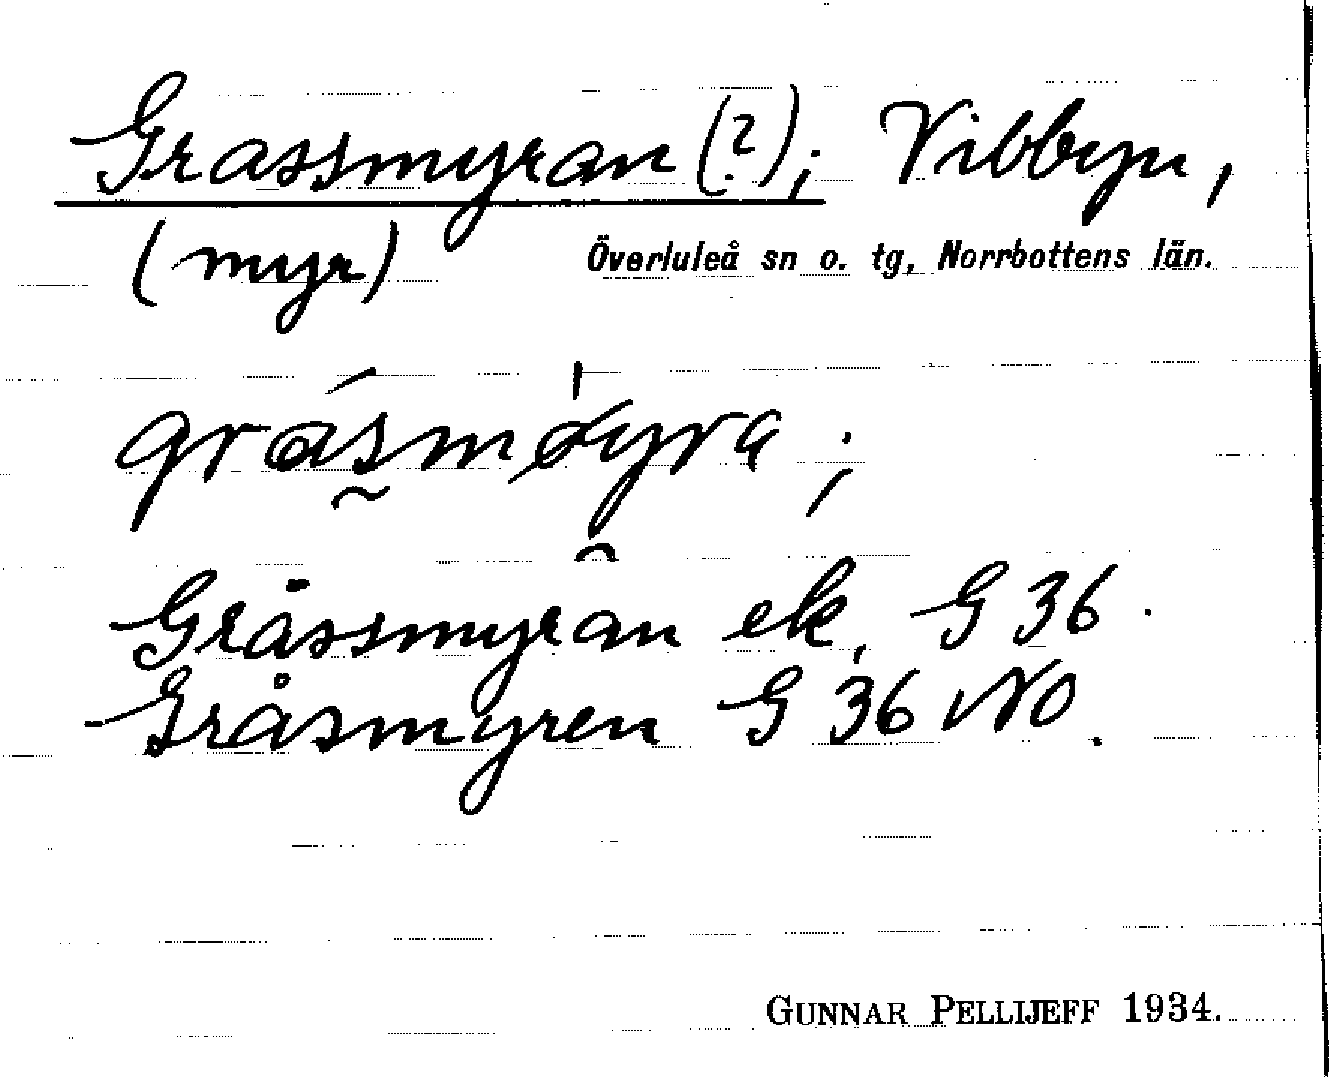 Grassmyran (?); Vibbyn,
(myr) Överluleå sn o. tg, Norrbottens län.
Gråssmyran ek, G 36.
Gråsmyren G 36 NO.
GUNNAR PELLIJEFF 1934.